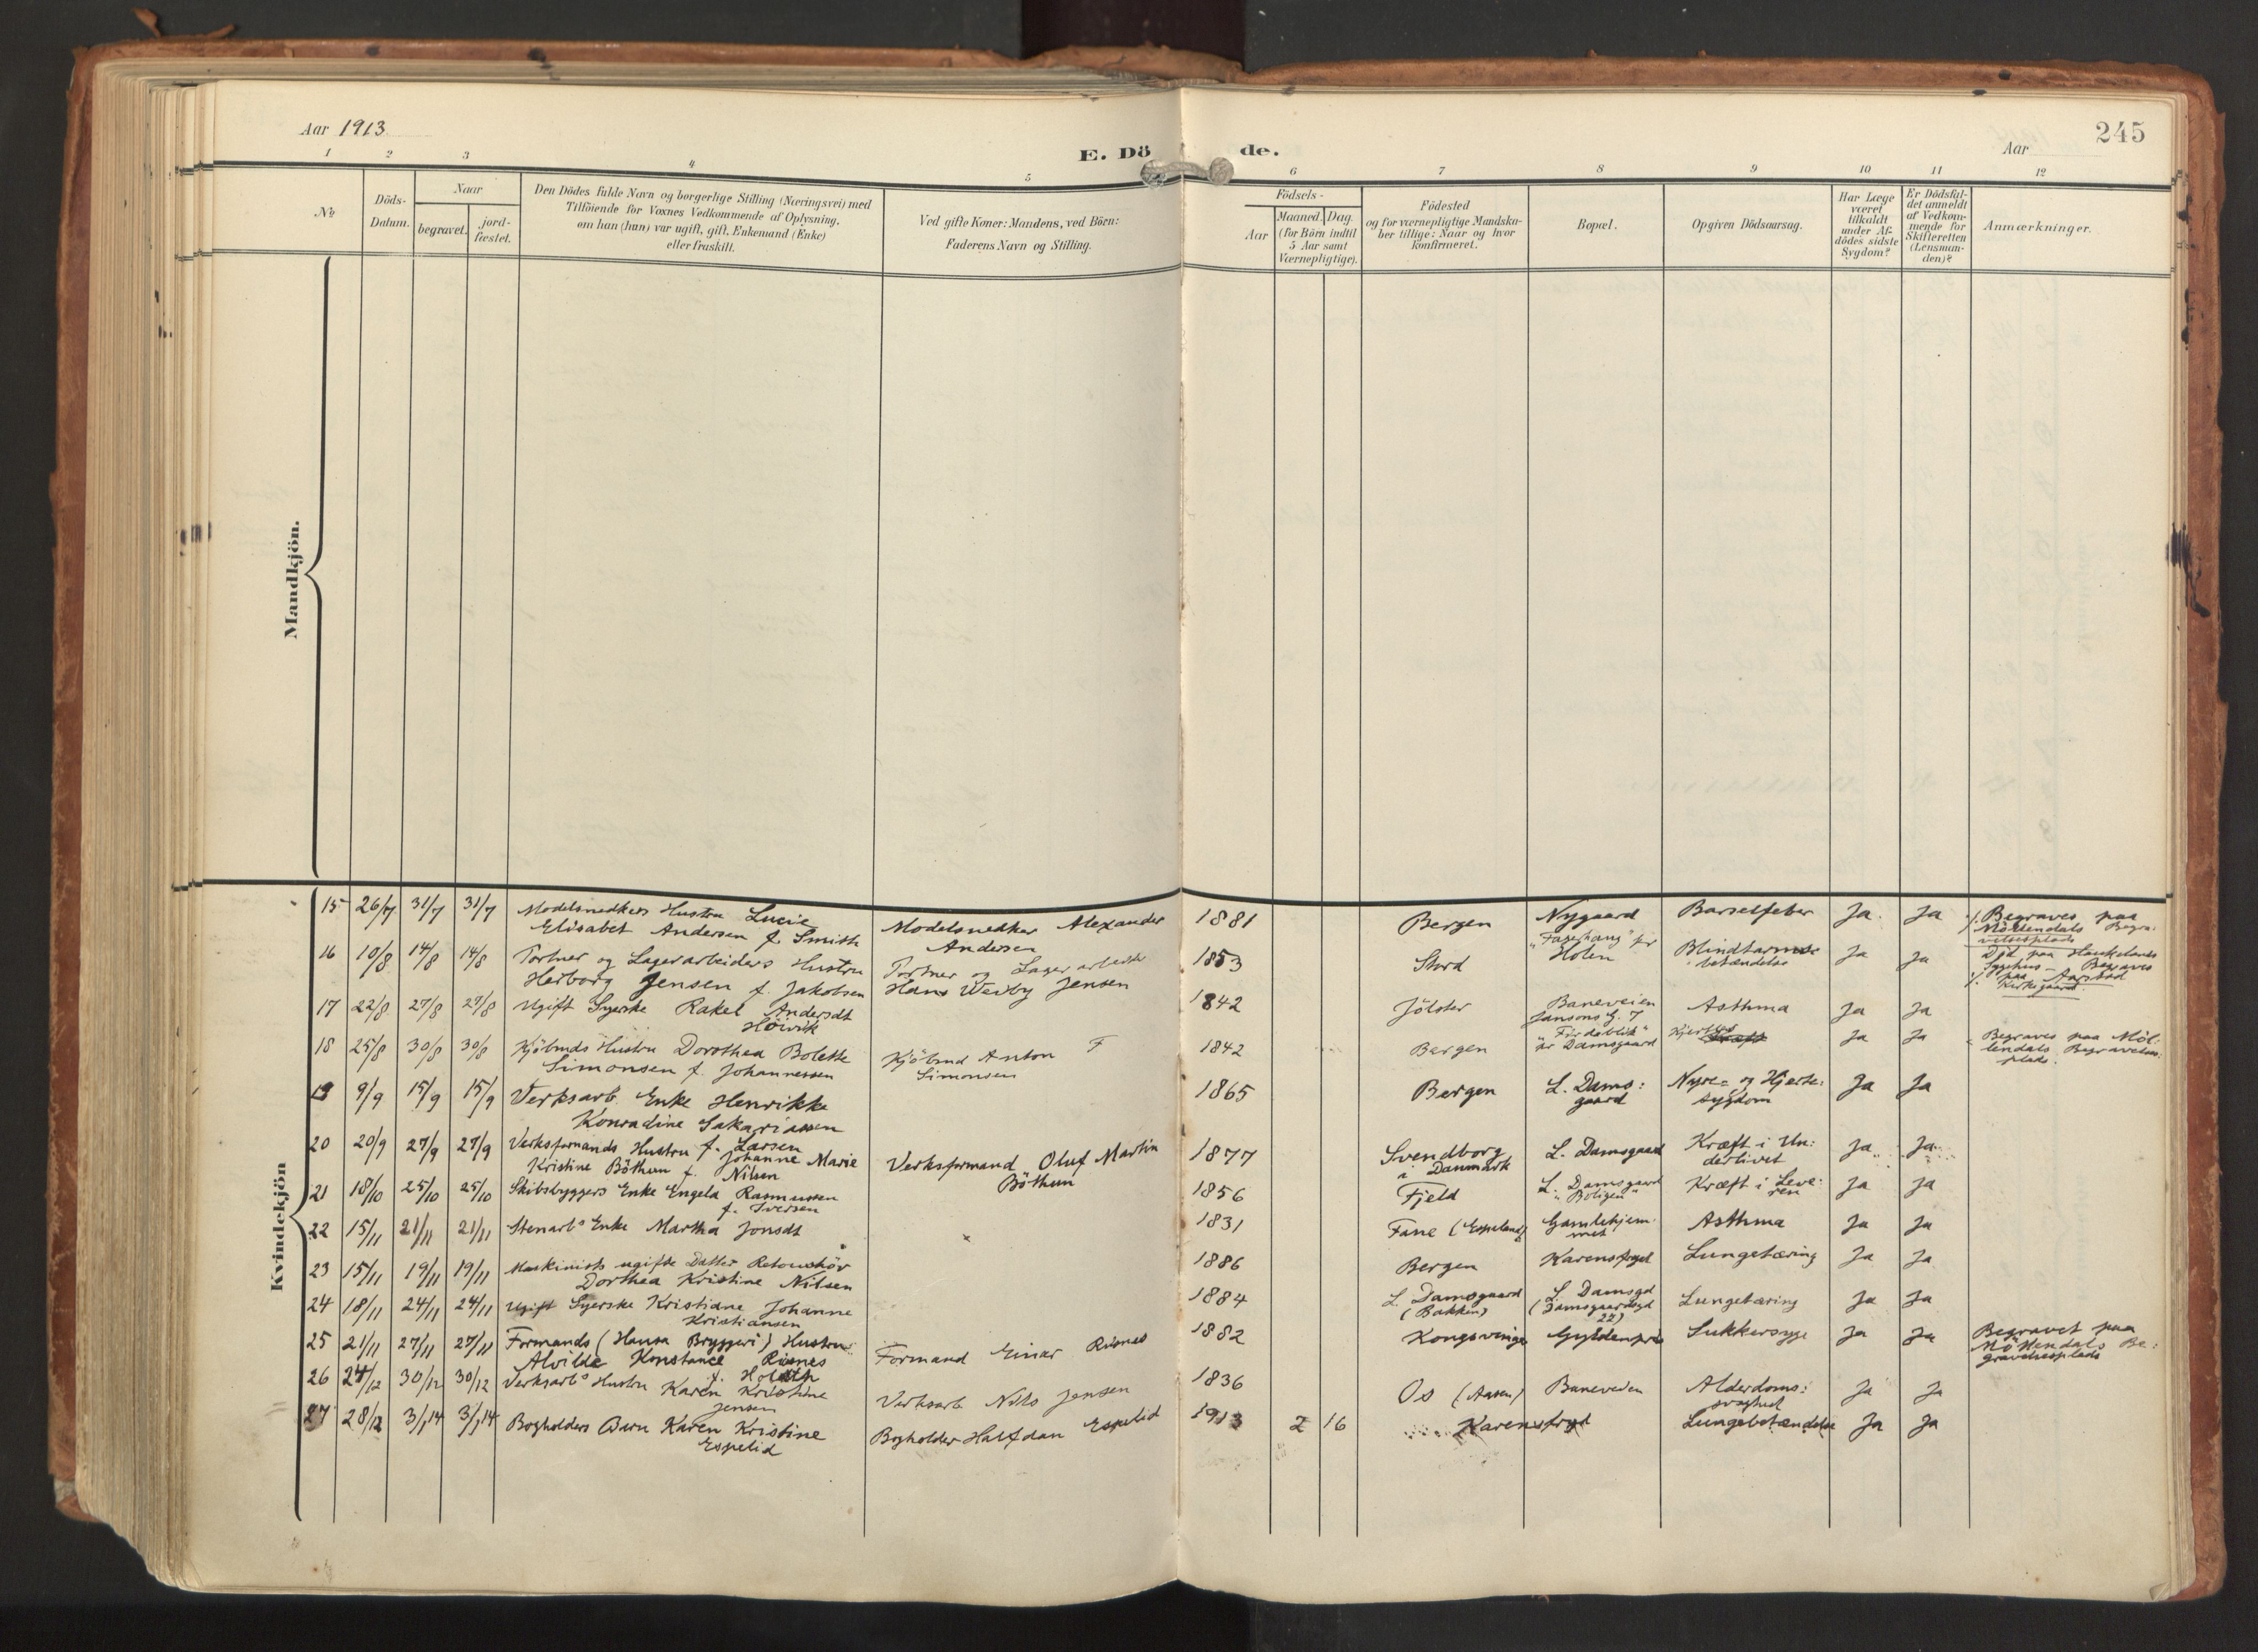 Aar 1913
E. Döde.
Aar
245
1 2 3 4 5 6 7 8 9 10 11 12
No
Döds-Datum.
Naar
begravet.
jord-fæstet.
Den Dödes fulde Navn og borgerlige Stilling (Næringsvei) med
Tilföiende for Voxnes Vedkommende af Oplysning,
om han (hun) var ugift, gift, Enkemand (Enke)
eller fraskilt.
Ved gifte Koner: Mandens, ved Börn:
Faderens Navn og Stilling.
Födsels-
Aar
Maaned. Dag.
(for Börn indtil
5 Aar samt
Værnepligtige).
Födested
og for værnepligtige Mandska-
ber tillige: Naar og hvor
konfirmeret.
Bopæl.
Opgiven Dödsaarsag.
Har Læge
været
tilkaldt
under Af-
dödes sidste
Sygdom?
Er Dödsfal-
det anmeldt
af Vedkom-
mende for
Skifteretten
(Lensman-
den)?
Anmærkninger.
Mandkjön.
Kvindekjön
15 26/7 31/7 31/7 Modelsnedkers Hustru Lucie
Elisabet Andersen f. Smith
Modelsnedker Alexander
Andersen
1881 Bergen Nygaard Barselfeber Ja Ja
Begraves paa
Möllendals Begra-
velsesplads
16 10/8 14/8 14/8 Portner og Lagerarbeiders Hustru
Herborg Jensen f. Jakobsen
Portner og Lagerarbeider
Hans Wedby Jensen
1853 Stord
"Fagerhaug" pr
Holen
Blindtarms-
betændelse
Ja Ja
Död paa Haukelands
Sygehus - Begraves
paa Aarstad
Kirkegaard.
17 22/8 27/8 27/8 Ugift Syerske Rakel Andersdt
Höivik
1842 Jölster
Baneveien
Jansons G. 7
Asthma Ja Ja
18 25/8 30/8 30/8 Kjöbmds Hustru Dorothea Bolette
Simonsen f. Johannessen
Kjöbmd Anton F
Simonsen
1842 Bergen
pr Damsgaard
Ja Ja
Begraves paa Möl-
lendals Begravelses-
plads.
19 9/9 15/9 15/9 Verksarb. Enke Henrikke
Konradine Sakariassen
f. Larsen
1865 Bergen
L. Dams:
gaard
Nyre- og Hjerte:
sygdom
Ja Ja
20 20/9 27/9 27/9 Verksformands Hustru Johanne Marie
Kristine Böthun f. Nilsen
Verksformand Oluf Martin
Böthun
1877 Svendborg
i Danmark
L. Damsgaard
Kræft i Un:
derlivet
Ja Ja
21 18/10 25/10 25/10 Skibsbyggers Enke Engela Rasmussen
f. Iversen
1856 Fjeld
L. Damsgaard
"Boligen"
Kræft i Leve:
ren
Ja Ja
22 15/11 21/11 21/11 Stenarbs Enke Martha Jonsdt
1831 Fane (Espeland)
Gamlehjem-
met
Asthma Ja Ja
23 15/11 19/11 19/11 Maskinists ugifte Datter
Dorthea Kristine Nilsen
1886 Bergen Karensfryd Lungetæring Ja Ja
24 18/11 24/11 24/11 Ugift Syerske Kristiane Johanne
Kristiansen
1884 L. Damsgaard
(Bakken)
L. Damsgd
(Damsgaardsgd
22)
Lungetæring Ja Ja
25 21/11 27/11 27/11 Formands (Hansa Bryggeri) Hustru
Alvilde Konstance Risnes
f. Holth
Formand Einar Risnes
1882 Kongsvinger Gyldenpris Sukkersyge Ja Ja
Begravet paa
Möllendals Be:
gravelsesplads
26 24/12 30/12 30/12 Verksarbs Hustru Karen Kristine
Jensen
Verksarb Nils Jensen
1836 Os (Aasen) Baneveien
Alderdoms:
svaghed
Ja Ja
27 28/12 3/1 14 3/1 14 Bogholders Barn Karen Kristine
Espelid
Bogholder Halfdan Espelid
1913 2 16 Karensfryd Lungebetændelse Ja Ja